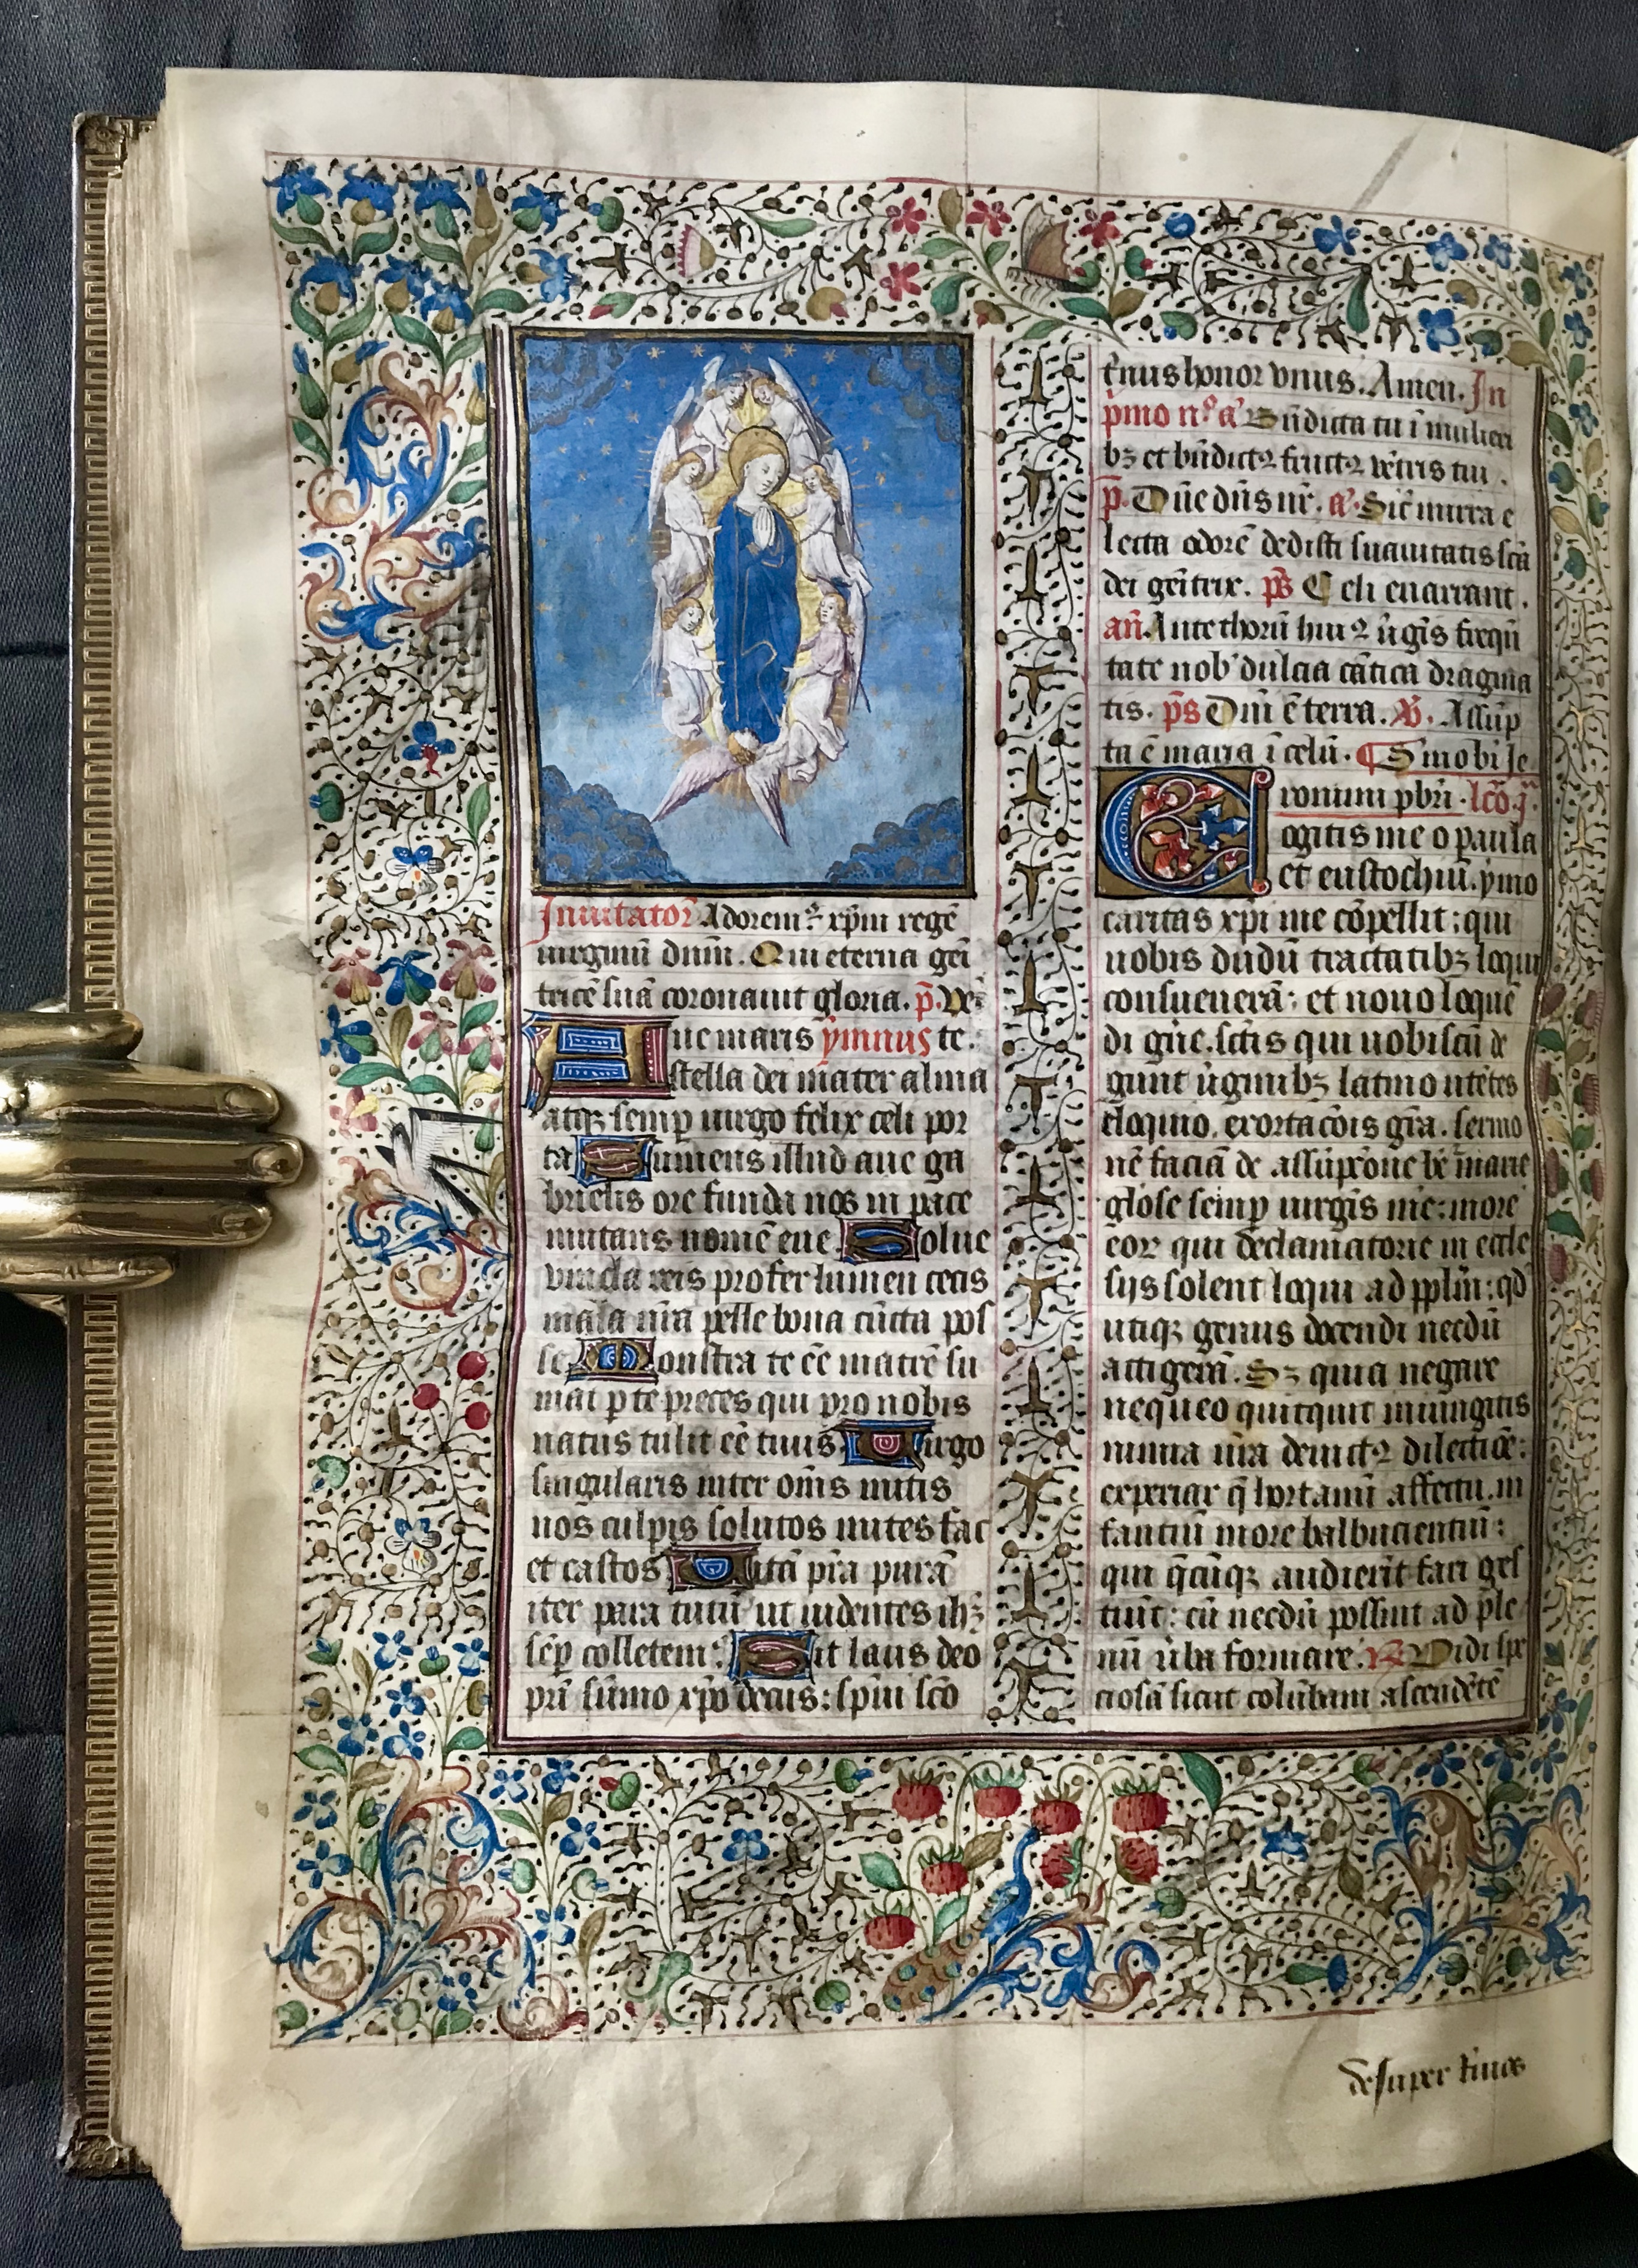 Inuitator Adorem⁹ xp̄m regē
uirginū dn̄m. Qui eterna geī
tricē suā coronauit gloria. p̄. Ve
Aue maris ẏmnus te.
stella dei mater alma
atqꝫ semꝑ uirgo felix celi por
ta Sumens illud aue ga
brielis ore funda nos in pace
mutans nomē eue Solue
vincla reis profer lumen cecis
mala nr̄a pelle bona cūcta pos
se Monstra te eē matrē su
mat ꝑ te preces qui pro nobis
natus tulit eē tuus Uirgo
singularis inter om̄s mitis
nos culpis solutos mites fac
et castos Uitā pr̄a purā
iter para tutū ut uidentes ihꝫ
sēꝑ colletem⁹ Sit laus deo
pr̄i sūmo xp̄o decus: sp̄iu scō
t'nus honor vnus. Amen. In
p'mo n° a' Bn̄dicta tu ī mulieri
bꝫ et bn̄dict⁹ fruct⁹ vētris tui.
p̄. Dn̄e dn̄s nr̄. a' Sic̄ mirra e
lecta odorē dedisti suauitatis scā
dei geītrix. p̄s Celi enarrant.
an̄. Ante thorū hui⁹ ūgīs frequē
tate nob' dulcia cātica dragma
tis. p̄s Dn̄i ē terra. V̄. Assūp
ta ē maria ī celū. ¶ Smo bi Ie
ronimi pb̄ri. lcō j.ª
Cogitis me o paula
et eustochiū. ẏmo
caritas xp̄i me cōpellit: qui
uobis dudū tractatibꝫ loqui
consueuerā: et nouo loquē
di gn̄e. sctīs qui uobiscū de
gunt ūginibꝫ latino utētes
eloquio. exortacōis gr̄a. sermo
nē faciā de assūpcōne bē marie
gl̄ose semꝑ uirgīs mē: more
eor̄ qui declamatorie in eccl̄e
sijs solent loqui ad pplm̄: qd̄
utiqꝫ genus docendi necdū
attigerā. Sꝫ quia negare
nequeo quitquit iniungitis
nimia nr̄a deuict⁹ dilectiōe:
experiar q̄ hortamī affectu. in
fantiū more balbucientiū:
qui q̄cūqꝫ audierīt fari ges
tiūt: cū necdū possint ad ple
nū ūba formare. R̄ Vidi spe
ciosā sicut columbam ascendētē
desuper riuos